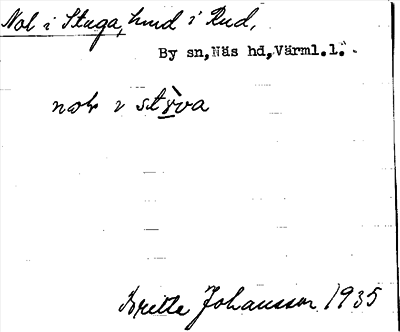 Nol i Stuga, hmd i Rud,
By sn, Näs hd, Värml.l.
i
Britta Johansson 1935